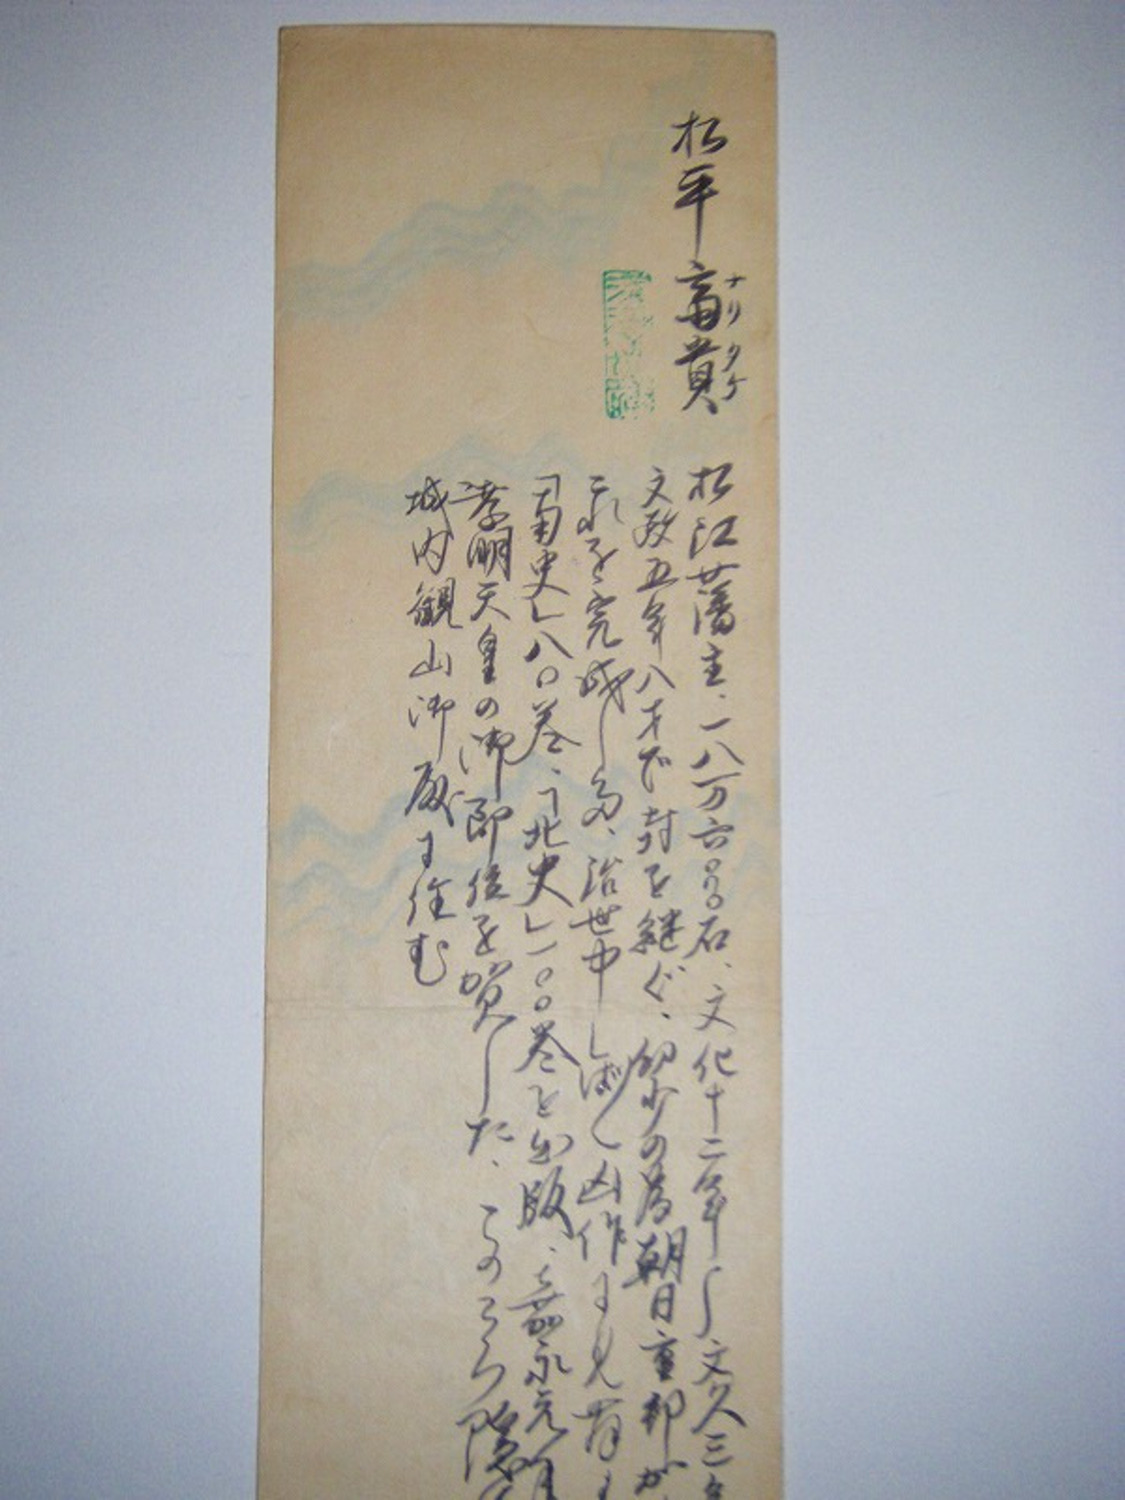 松平斎貴
ナリタケ
松江藩主、一八万六〇〇〇石、文化十二年〜文久三
文政五年八才で封を継ぐ、幼少の為朝日重郎が
これを完成し
治世中しばしば凶作に見舞
「南史」八〇巻、「北史」一〇〇巻を出版、嘉永元年
孝明天皇の御即位を賀した、このころ隠
城内観山御殿に住む